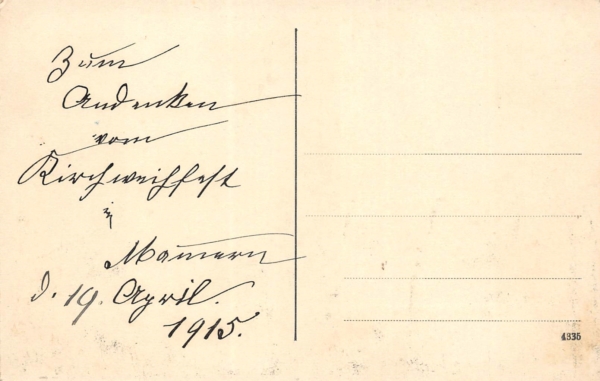 Zum
Andenken
vom
Kirchweihfest
in
Mammern
d. 19. April.
1915.
4335